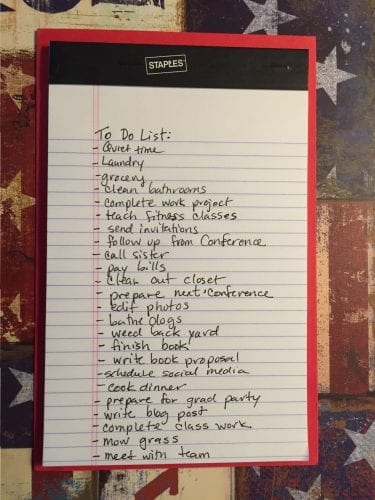 STAPLES
To Do List:
- Quiet time
- Laundry
- grocery
- clean bathrooms
- complete work project
- teach fitness classes
- send invitations
- follow up from Conference
- call sister
- pay bills
- clean out closet
- prepare next Conference
- edit photos
- bathe dogs
- weed back yard
- finish book
- write book proposal
- schedule social media
- cook dinner
- prepare for grad party
- write blog post
- complete class work
- mow grass
- meet with team